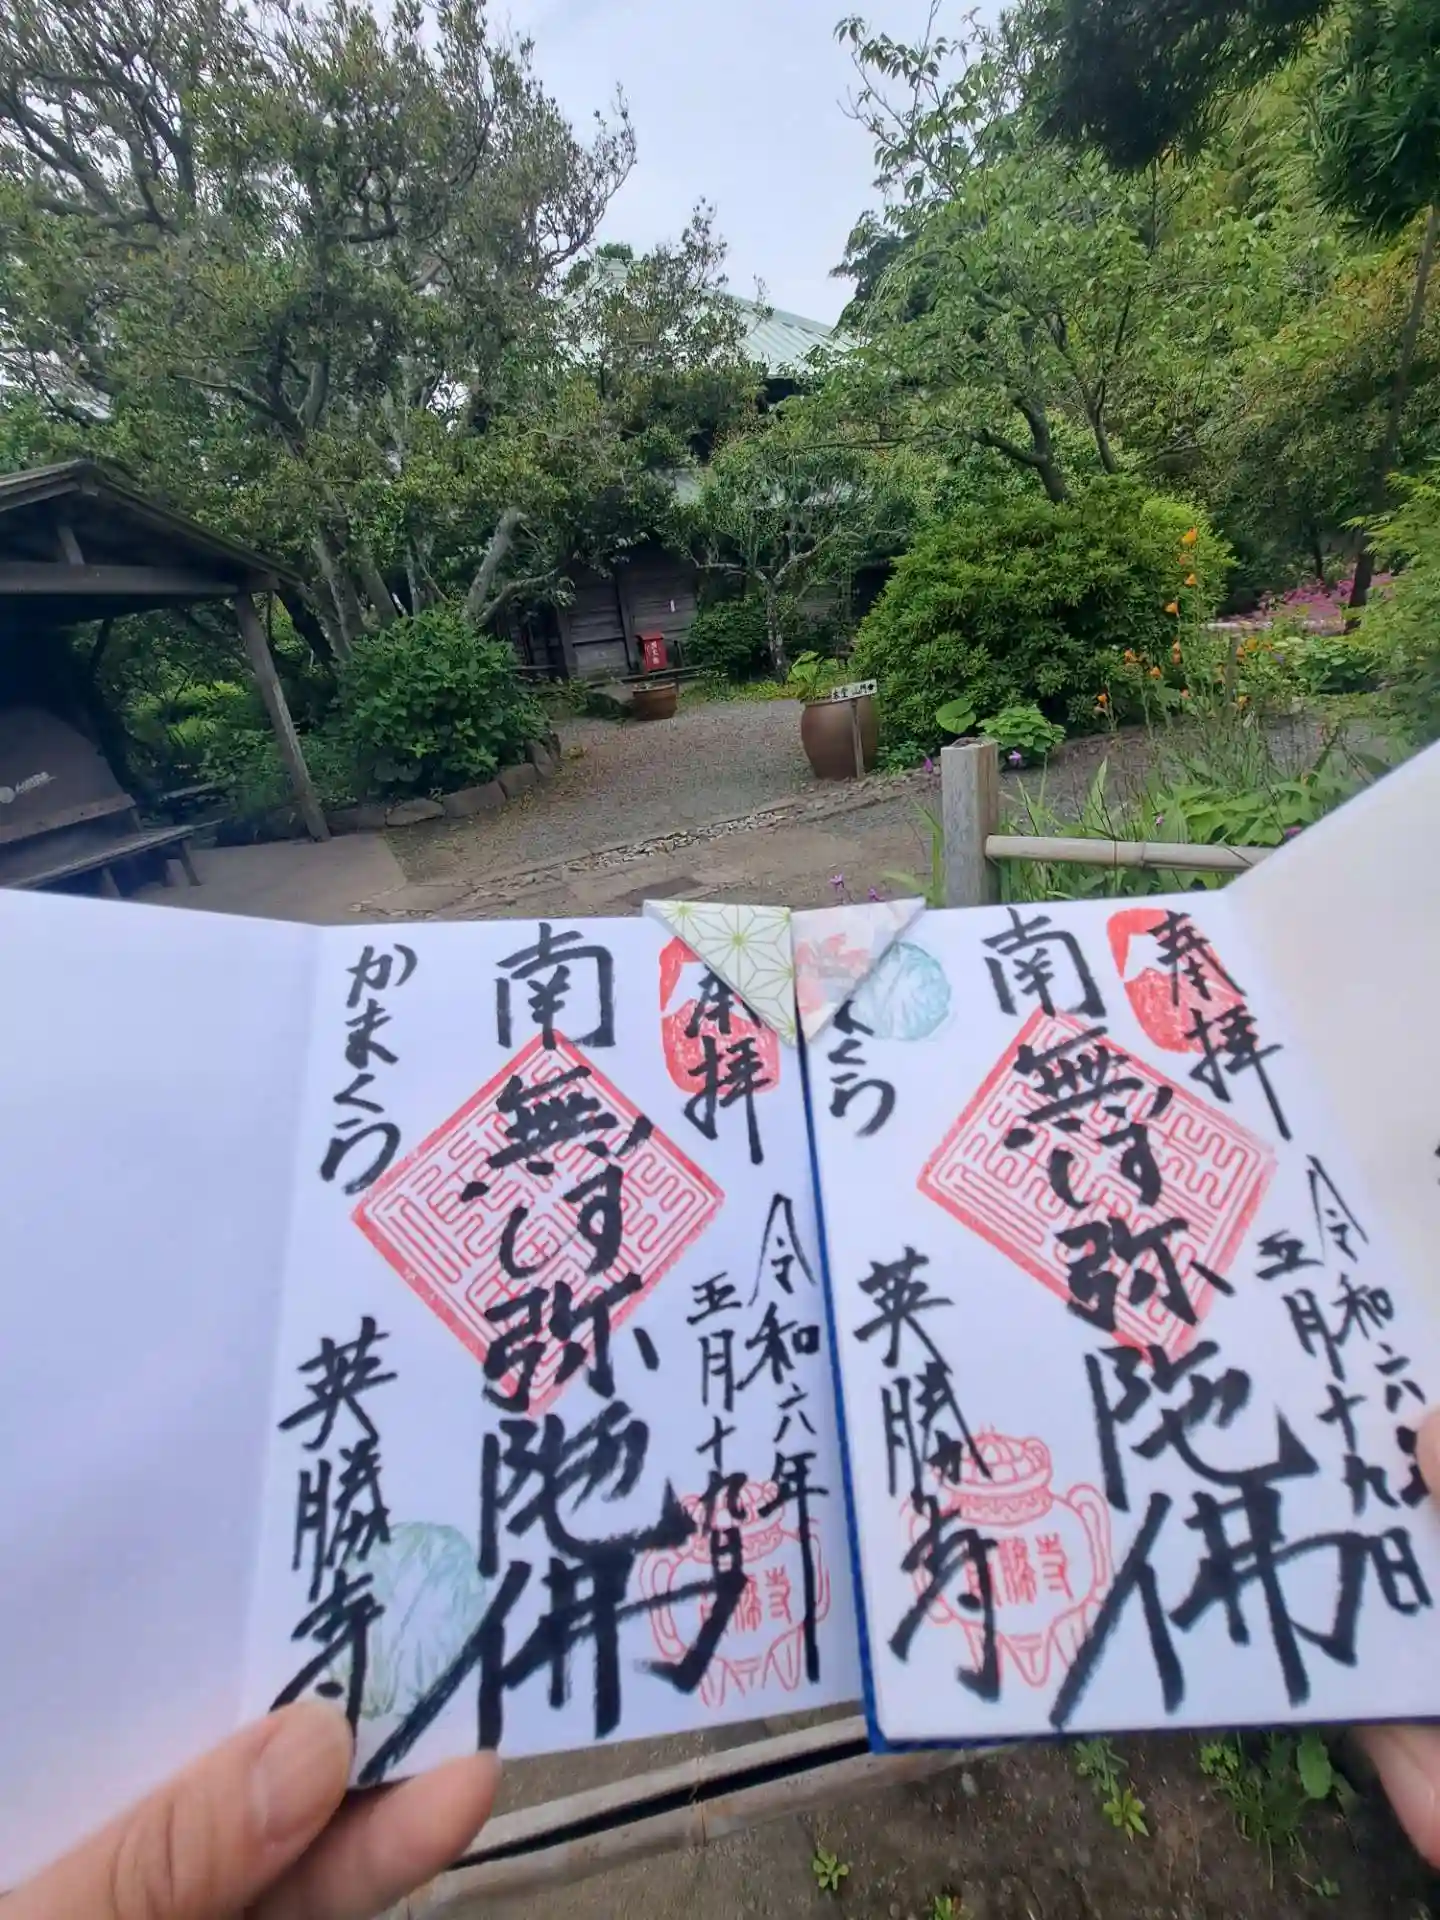 奉拝
令和六年
五月十九日
南無阿弥陀佛
かまくら
英勝寺
奉拝
令和六
五月十九日
南無阿弥陀佛
くら
英勝寺
本堂 山門
消火器